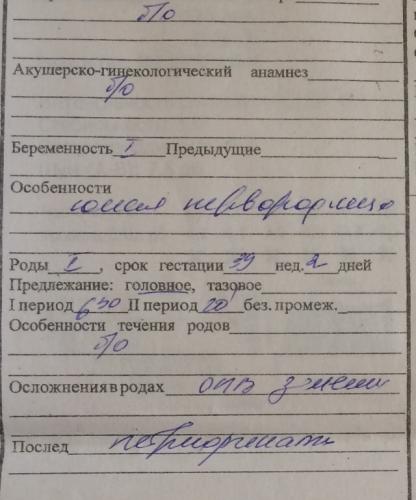 б/о
Акушерско-гинекологический анамнез
б/о
Беременность I Предыдущие
Особенности
юная первородящая
Роды I, срок гестации 39 нед. 2 дней
Предлежание: головное, тазовое
I период 6 30 II период 20' без. промеж.
Особенности течения родов
б/о
Осложнения в родах
Послед